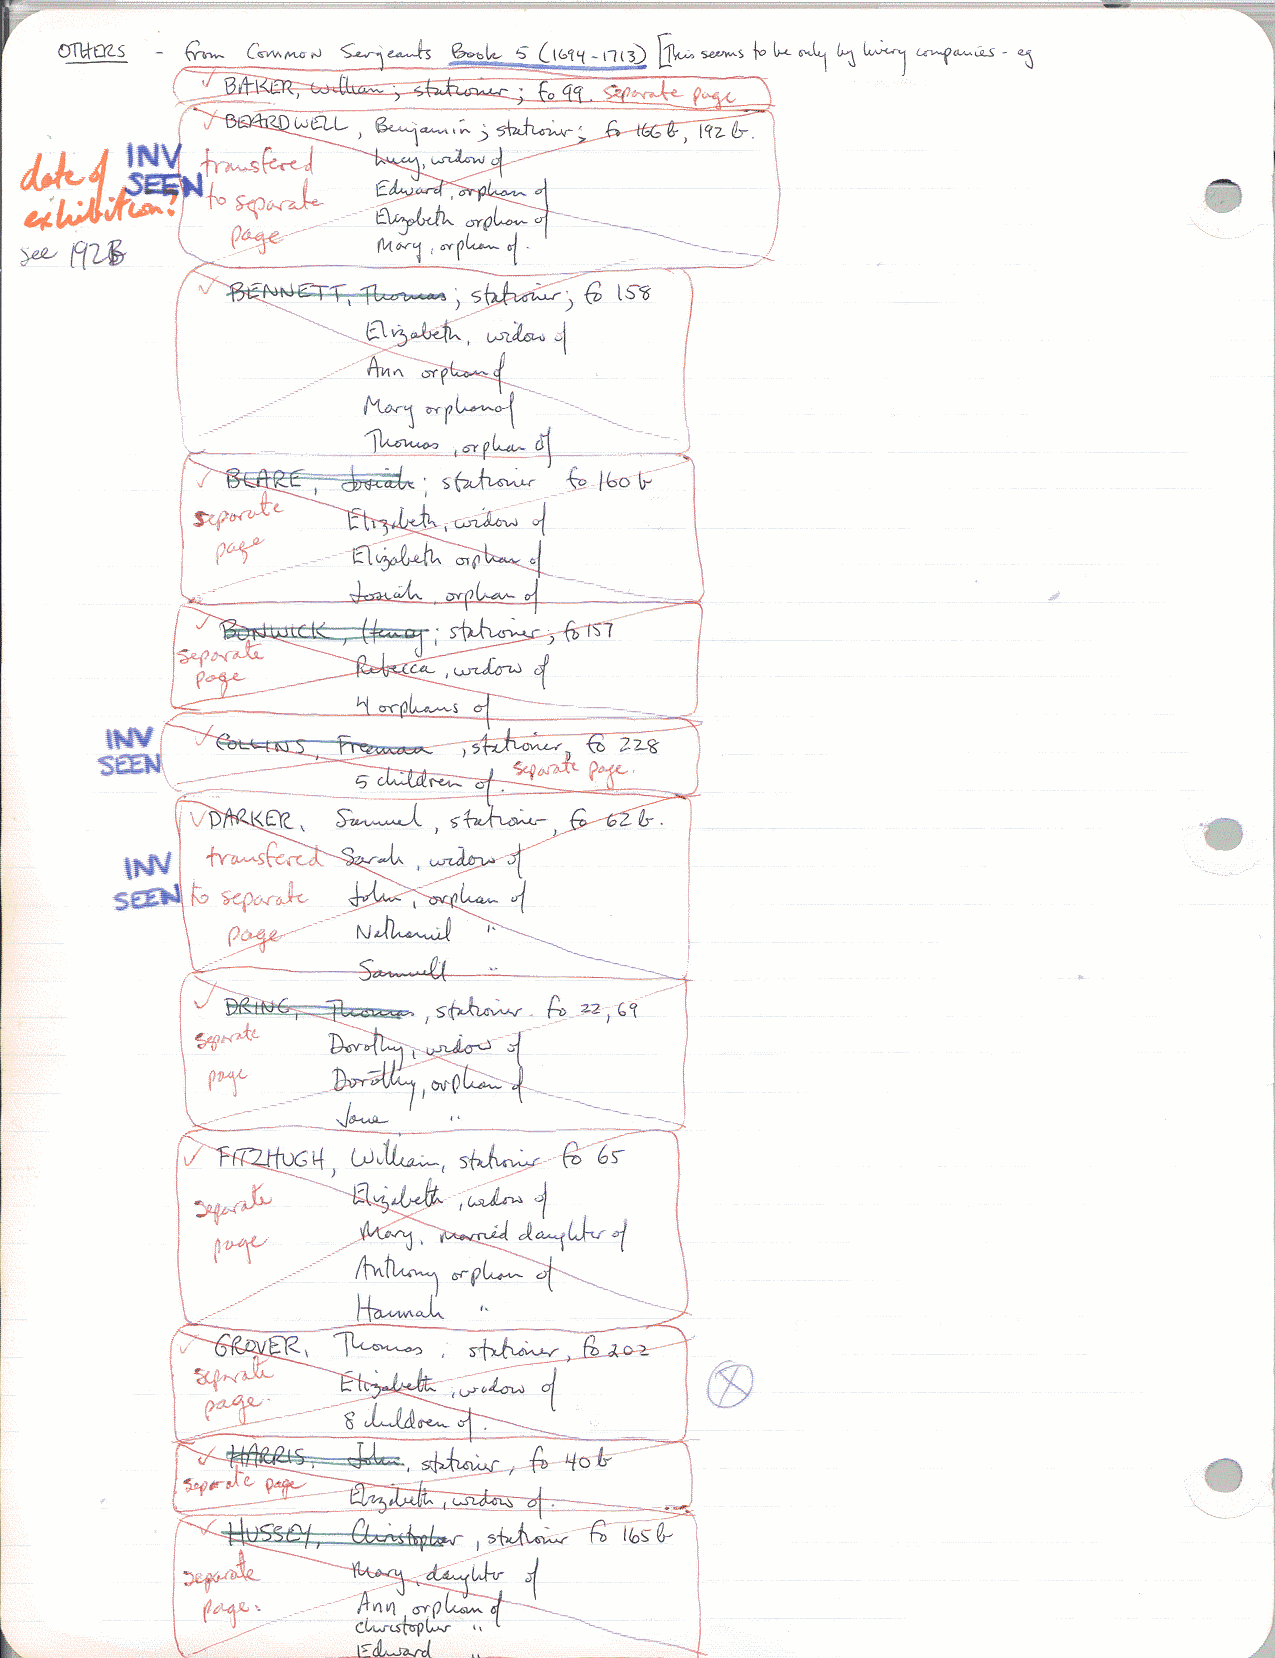 OTHERS - from Common Serjeants Book 5 (1694-1713) [This seems to be only by livery companies - eg
✓ BAKER, William; stationer; fo 99. separate page
✓ BEARDWELL, Benjamin; stationer; fo 166b, 192b.
date of exhibition? INV SEEN transfered Lucy, widow of
to separate Edward, orphan of
page Elizabeth orphan of
see 192B Mary, orphan of.
✓ BENNETT, Thomas; stationer; fo 158
Elizabeth, widow of
Ann orphan of
Mary orphan of
Thomas, orphan of
✓ BLARE, Josiah; stationer fo 160b
separate Elizabeth, widow of
page Elizabeth orphan of
Josiah, orphan of
✓ BONWICK, Henry; stationer; fo 157
separate page Rebecca, widow of
4 orphans of
INV SEEN ✓ COLLINS, Freeman, stationer, fo 228
5 children of. separate page.
✓ DARKER, Samuel, stationer, fo 62b.
INV SEEN transfered Sarah, widow of
to separate John, orphan of
page Nathaniel "
Samuell "
✓ DRING, Thomas, stationer. fo 22, 69
separate Dorothy, widow of
page Dorothy, orphan of
Jane "
✓ FITZHUGH, William, stationer fo 65
separate Elizabeth, widow of
page Mary, married daughter of
Anthony orphan of
Hannah "
✓ GROVER, Thomas; stationer, fo 202
separate Elizabeth, widow of
page. 8 children of.
✓ HARRIS, John, stationer, fo 40b
separate page Elizabeth, widow of.
✓ HUSSEY, Christopher, stationer fo 165b
separate Mary, daughter of
page. Ann, orphan of
Christopher "
Edward "